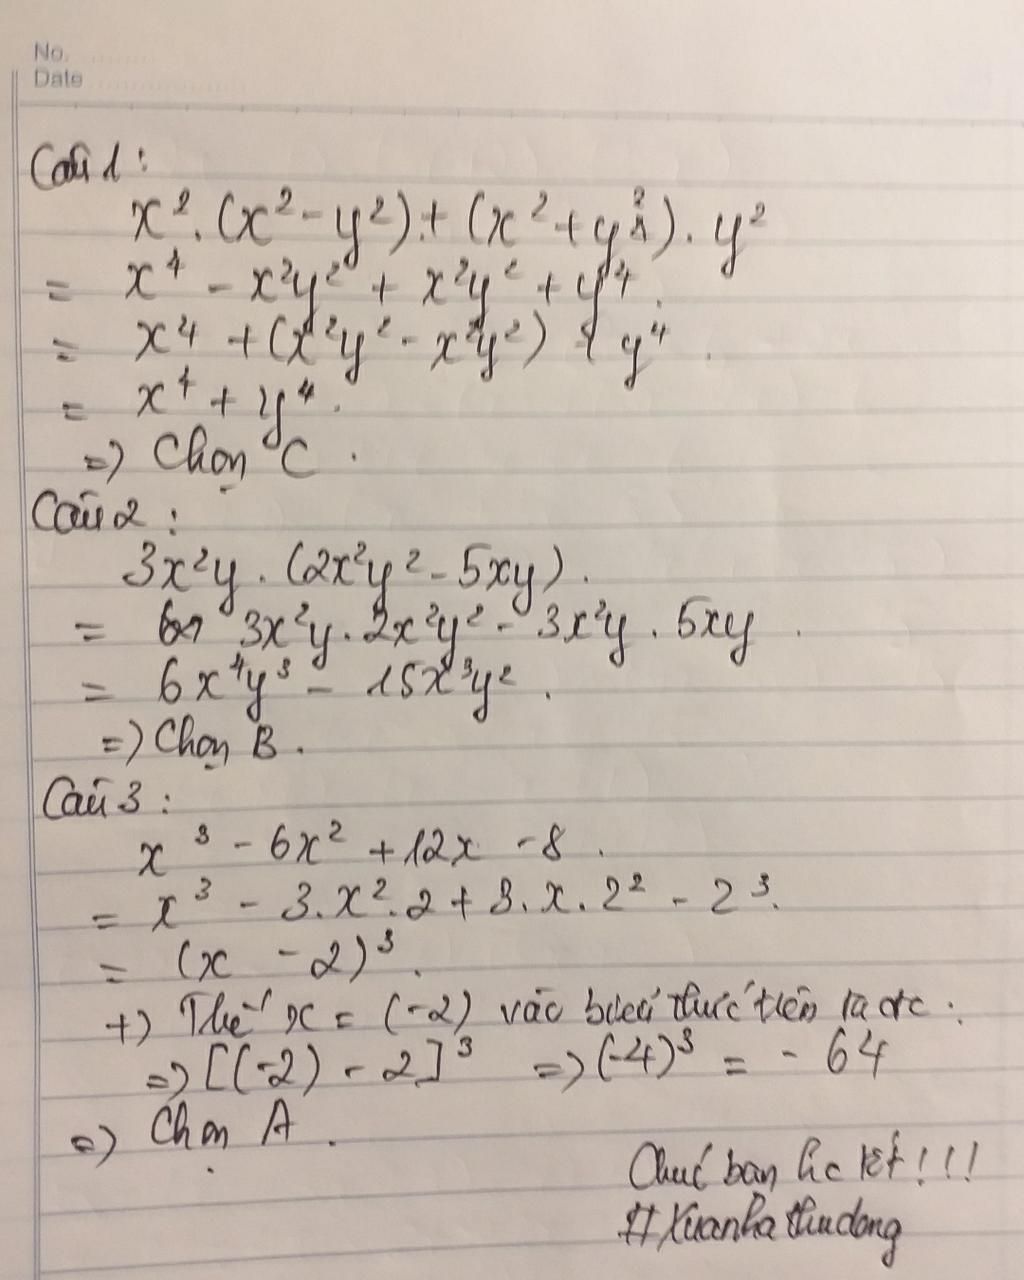 No.
Date
Câu 1:
x². (x² - y²) + (x² + y²). y²
= x⁴ - x²y² + x²y² + y⁴.
= x⁴ + (x²y² - x²y²) + y⁴.
= x⁴ + y⁴.
=> Chọn C.
Câu 2:
3x²y. (2x²y² - 5xy).
= 3x²y. 2x²y² - 3x²y. 5xy.
= 6x⁴y³ - 15x³y².
=> Chọn B.
Câu 3:
x³ - 6x² + 12x - 8.
= x³ - 3.x².2 + 3.x.2² - 2³.
= (x - 2)³.
+) Thế x = (-2) vào biểu thức trên ta đc:
=> [(-2) - 2]³ => (-4)³ = - 64
=> Chọn A.
Chúc bạn học tốt!!!
#Xuanhathudong